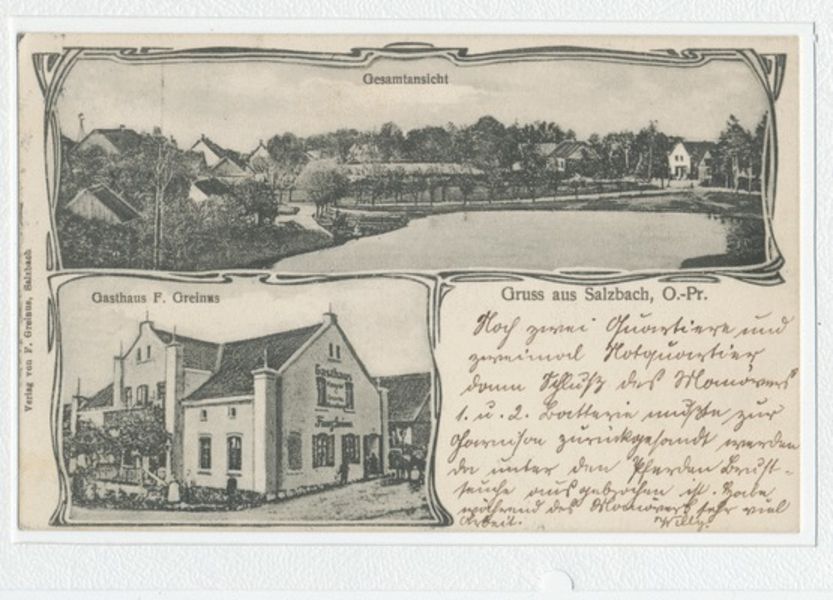 Gesamtansicht
Gasthaus F. Greinus
Gruss aus Salzbach, O.-Pr.
Verlag von F. Greinus, Salzbach
Gasthaus
Noch zwei Quartiere und
zweimal Notquartier
dann Schluß des Manövers
1. u. 2. Batterie mußte zur
Garnison zurückgesandt werden
da unter den Pferden Brust-
seuche ausgebrochen ist. Habe
während des Manövers sehr viel
Arbeit. Willy.